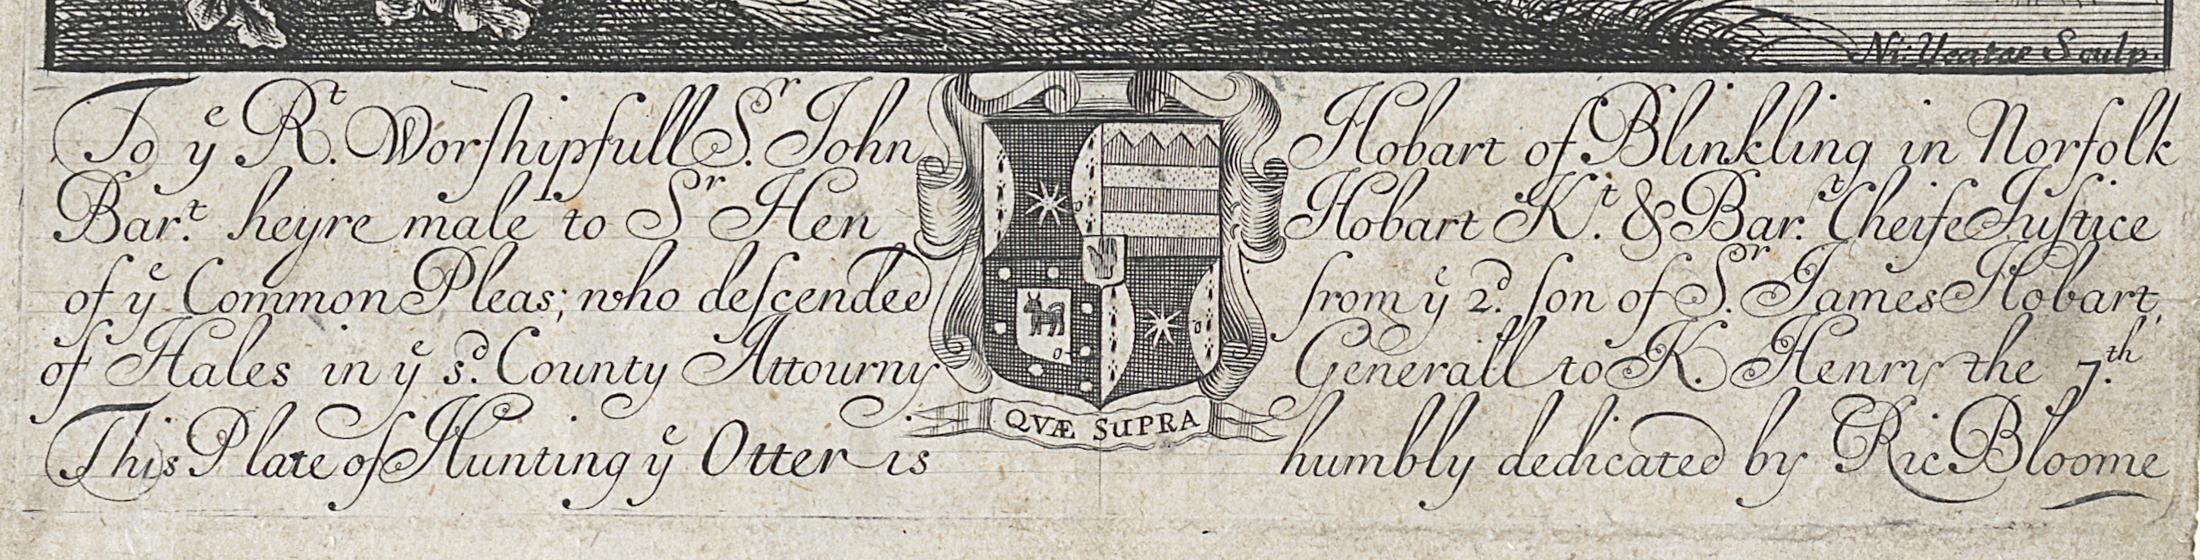 Ni: Yeates Sculp
To yᵉ Rᵗ. Worſhipfull Sʳ. John Hobart of Blinkling in Norfolk
Barᵗ. heyre male to Sʳ Hen Hobart Kᵗ. & Barᵗ. Cheife Juſtice
of yᵉ Common Pleas; who deſcended from yᵉ 2ᵈ. ſon of Sʳ. James Hobart,
of Hales in yᵉ sᵈ. County Attourny Generall to K. Henry the 7.ᵗʰ
This Plate of Hunting yᵉ Otter is humbly dedicated by Ric Bloome
QVÆ SUPRA